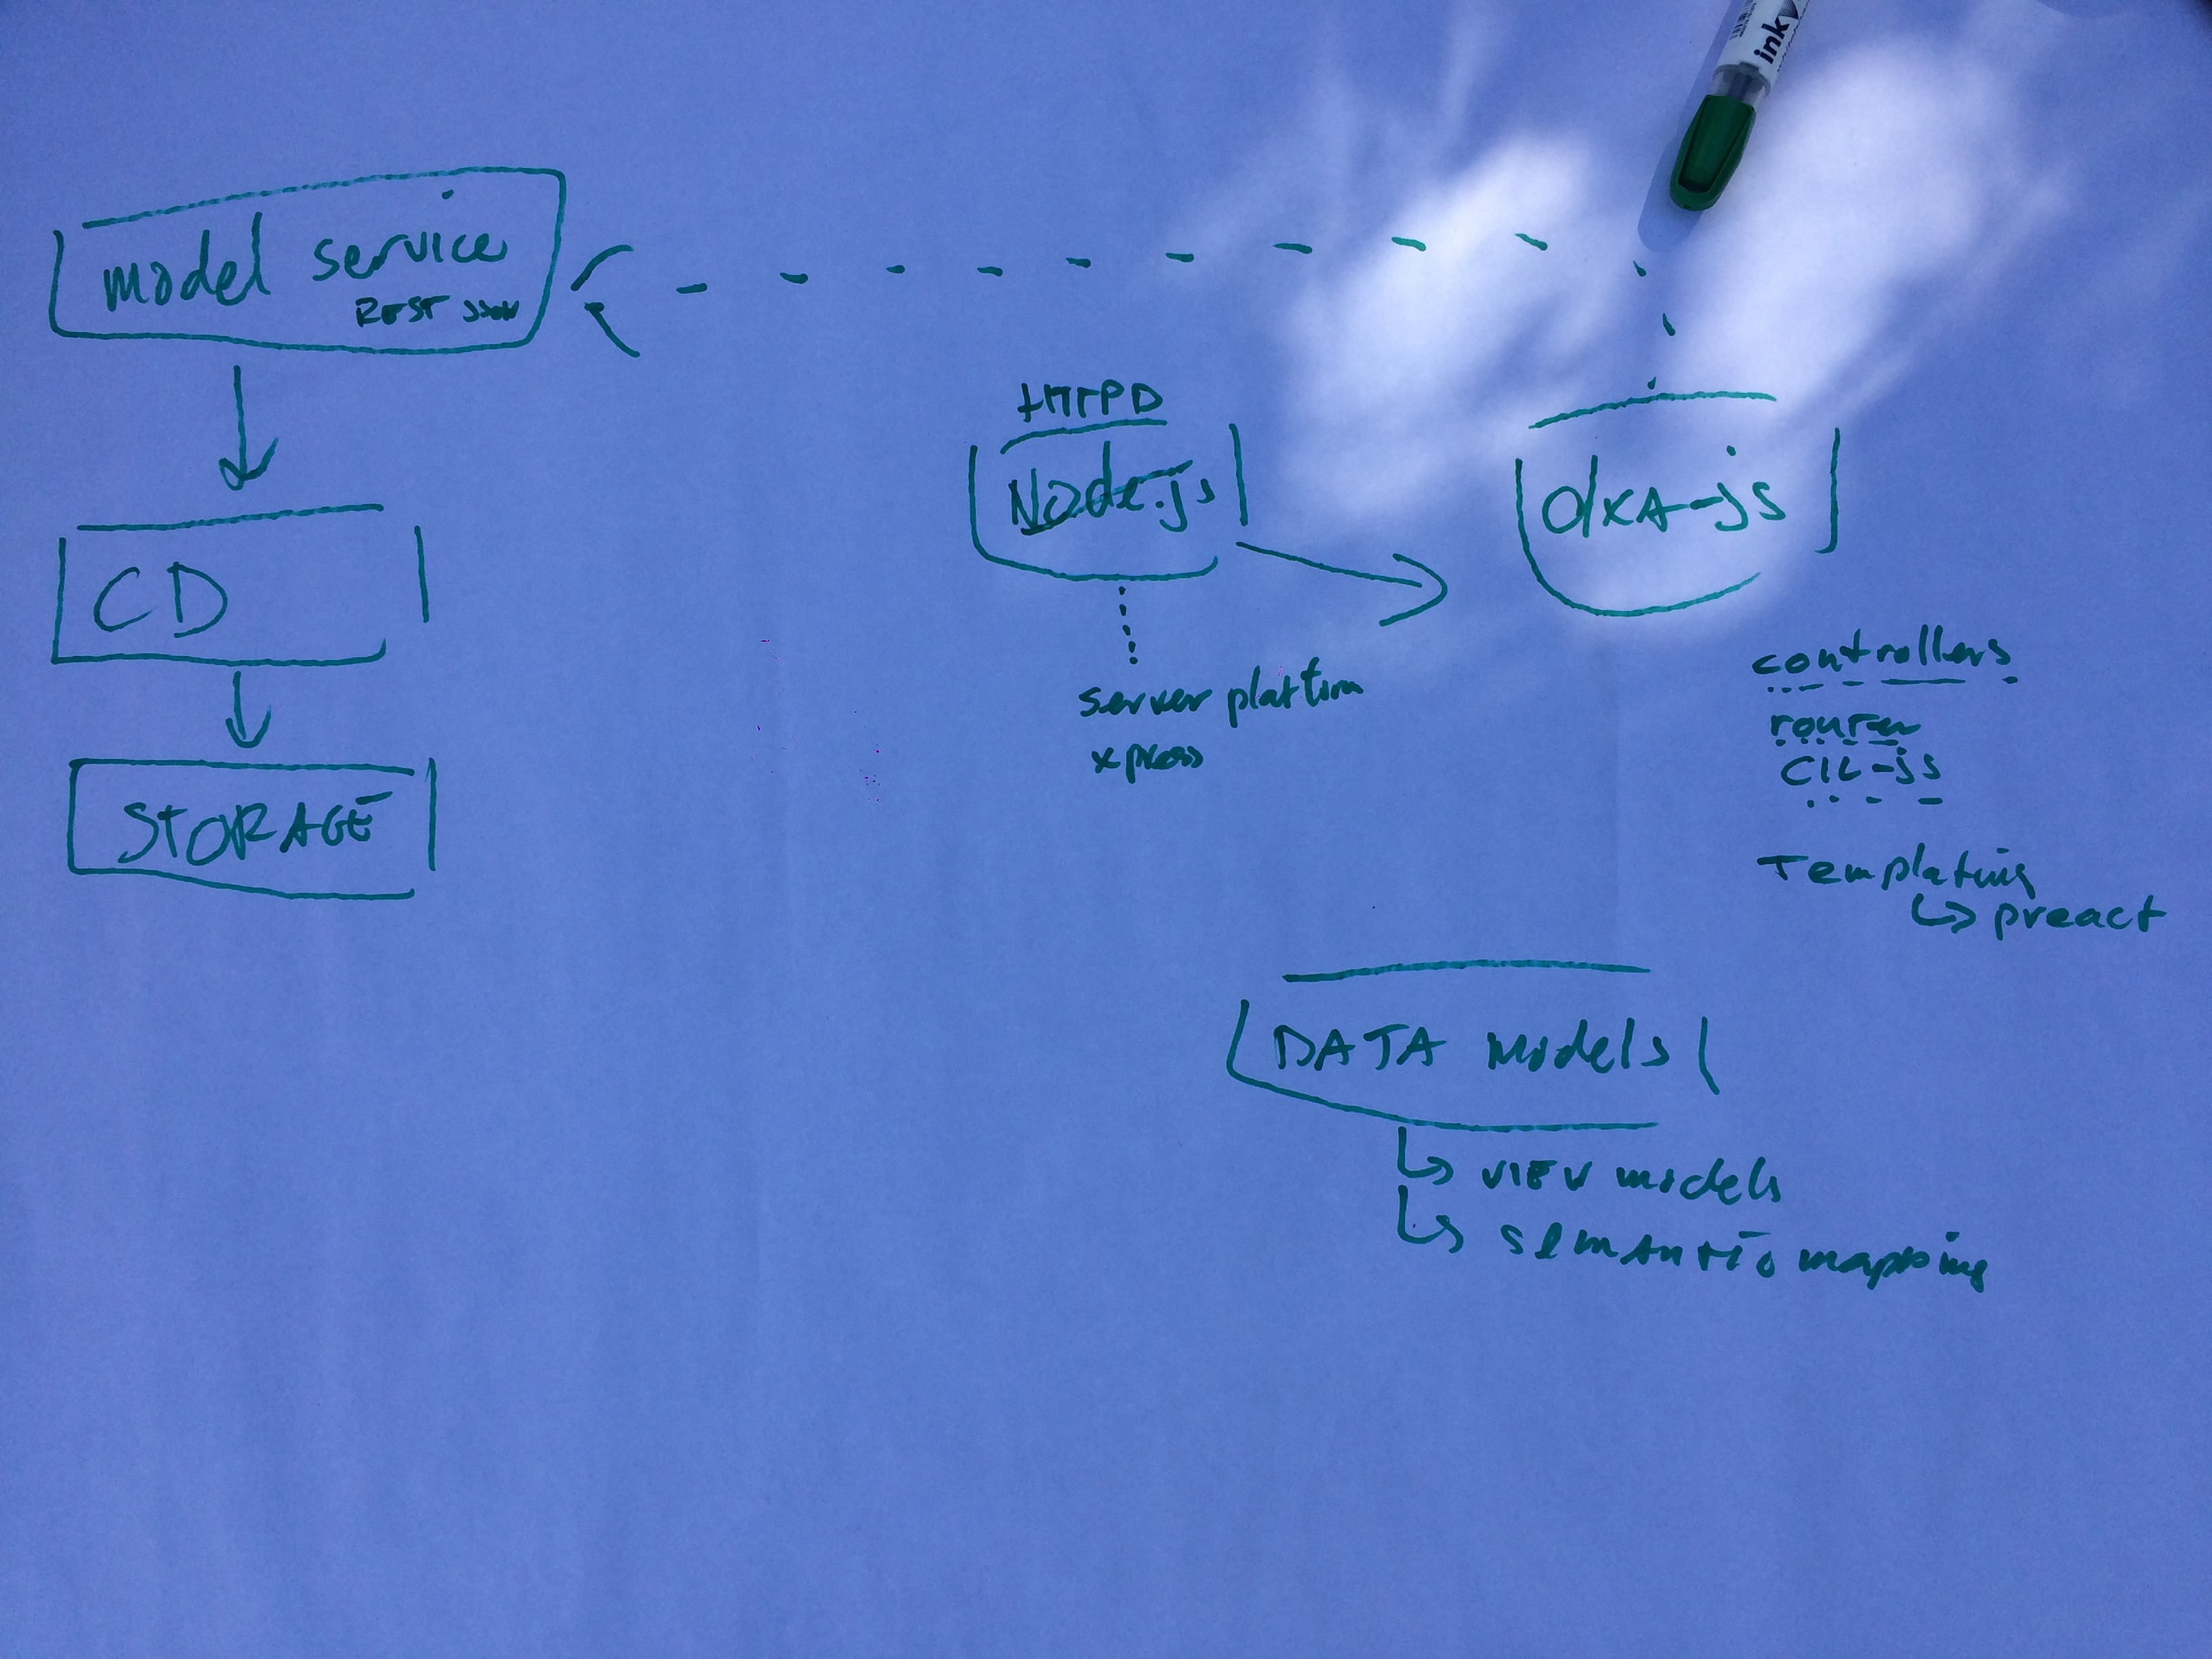 ink
model service
REST JSON
HTTPD
Node.js
dxA-js
CD
server platform
xpress
controllers
router
CIL-js
STORAGE
Templating
↳ preact
DATA models
↳ VIEW models
↳ semantic mapping